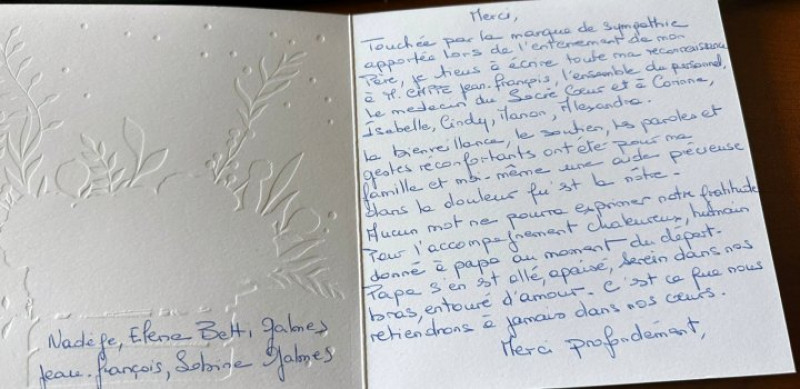 Merci,
Touchée par la marque de sympathie
apportée lors de l'enterrement de mon
Père, je tiens à écrire toute ma reconnaissance
à Jean-François, l'ensemble du personnel,
le medecin du Sacré Cœur et à
Isabelle, Cindy, Manon, Alexandra.
La bienveillance, le soutien, les paroles et
gestes réconfortants ont été pour ma
famille et moi-même une aide précieuse
dans la douleur qu'est la nôtre.
Aucun mot ne pourra exprimer notre gratitude
Pour l'accompagnement chaleureux, humain
donné à papa au moment du départ.
Papa s'en est allé, apaisé, serein dans nos
bras, entouré d'amour. C'est ce que nous
retiendrons à jamais dans nos cœurs.
Merci profondément,
Nadège, Elena Betti
Jean-François, Sabine